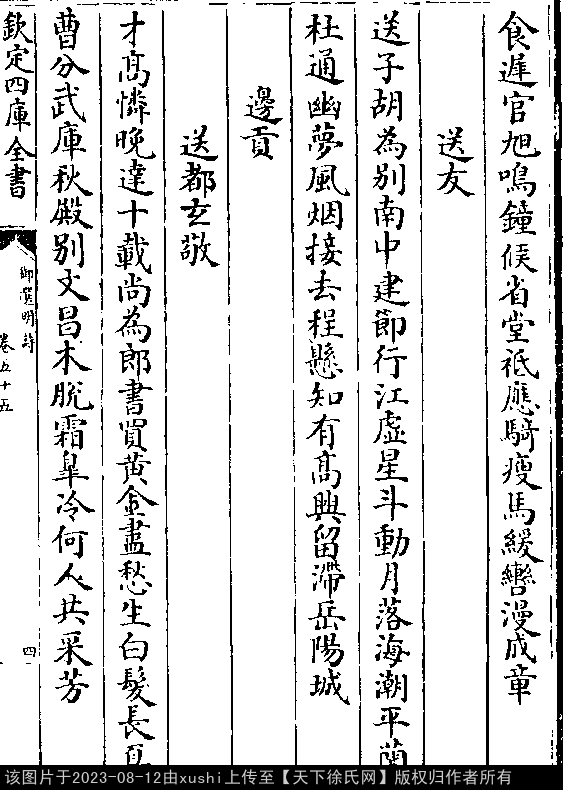 食遲官旭鳴鐘候省堂祗應騎瘦馬緩轡漫成章
送友
送子胡為別南中建節行江虛星斗動月落海潮平蘭
杜通幽夢風烟接去程懸知有髙興留滯岳陽城
邊貢
送都玄敬
才髙憐晚達十載尚為郎書買黄金盡愁生白髮長夏
曹分武庫秋殿别文昌木脫霜臯冷何人共采芳
欽定四庫全書
御選明詩
卷五十五
四
该图片于2023-08-12由xushi上传至【天下徐氏网】版权归作者所有